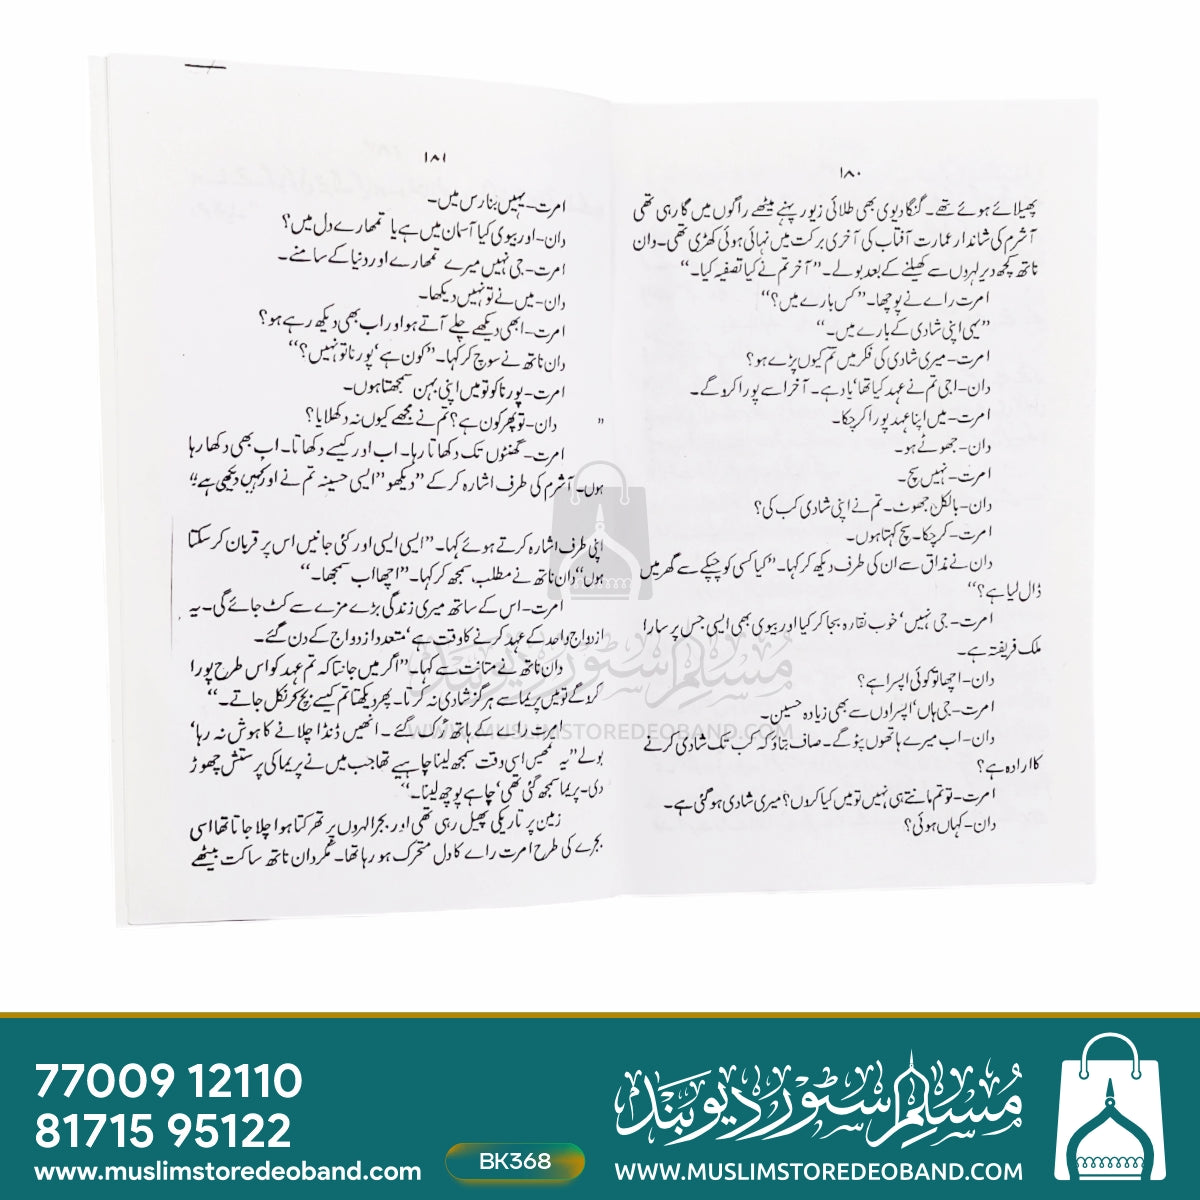 ۱۸۰
پھیلائے ہوئے تھے۔ گنگا دیوی بھی طلائی زیور پہنے بیٹھے راگوں میں گا رہی تھی
آشرم کی شاندار عمارت آفتاب کی آخری برکت میں نہائی ہوئی کھڑی تھی۔ دان
ناتھ کچھ دیر لہروں سے کھیلنے کے بعد بولے۔ ”آخر تم نے کیا تصفیہ کیا۔“
امرت رائے نے پوچھا۔ ”کس بارے میں؟“
”یہی اپنی شادی کے بارے میں۔“
امرت- میری شادی کی فکر میں تم کیوں پڑے ہو؟
دان- اجی تم نے عہد کیا تھا‘ یاد ہے۔ آخر اسے پورا کرو گے۔
امرت- میں اپنا عہد پورا کر چکا۔
دان- جھوٹے ہو۔
امرت- نہیں سچ۔
دان- بالکل جھوٹ۔ تم نے اپنی شادی کب کی؟
امرت- کر چکا۔ سچ کہتا ہوں۔
دان نے مذاق سے ان کی طرف دیکھ کر کہا۔ ”کیا کسی کو چپکے سے گھر میں
ڈال لیا ہے؟“
امرت- جی نہیں‘ خوب نقارہ بجا کر کیا اور بیوی بھی ایسی جس پر سارا
ملک فریفتہ ہے۔
دان- اچھا تو کوئی اپسرا ہے؟
امرت- جی ہاں‘ اپسراؤں سے بھی زیادہ حسین۔
دان- اب میرے ہاتھوں پٹو گے۔ صاف بتاؤ کہ کب تک شادی کرنے
کا ارادہ ہے؟
امرت- تو تم مانتے ہی نہیں تو میں کیا کروں؟ میری شادی ہو گئی ہے۔
دان- کہاں ہوئی؟
۱۸۱
امرت- یہیں بنارس میں۔
دان- اور بیوی کیا آسمان میں ہے یا تمھارے دل میں؟
امرت- جی نہیں میرے تمھارے اور دنیا کے سامنے۔
دان- میں نے تو نہیں دیکھا۔
امرت- ابھی دیکھے چلے آتے ہو اور اب بھی دیکھ رہے ہو؟
دان ناتھ نے سوچ کر کہا۔ ”کون ہے‘ پورنا تو نہیں؟“
امرت- پورنا کو تو میں اپنی بہن سمجھتا ہوں۔
” دان- تو پھر کون ہے؟ تم نے مجھے کیوں نہ دکھلایا؟
امرت- گھنٹوں تک دکھاتا رہا۔ اب اور کیسے دکھاتا۔ اب بھی دکھا رہا
ہوں۔ آشرم کی طرف اشارہ کر کے ”دیکھو“ ایسی حسینہ تم نے اور کہیں دیکھی ہے‘‘
اپنی طرف اشارہ کرتے ہوئے کہا۔ ”ایسی ایسی اور کئی جانیں اس پر قربان کر سکتا
ہوں“ دان ناتھ نے مطلب سمجھ کر کہا۔ ”اچھا اب سمجھا۔“
امرت- اس کے ساتھ میری زندگی بڑے مزے سے کٹ جائے گی۔ یہ
ازدواج واحد کے عہد کرنے کا وقت ہے‘ متعدد ازدواج کے دن گئے۔
دان ناتھ نے متانت سے کہا۔ ”اگر میں جانتا کہ تم عہد کو اس طرح پورا
کرو گے تو میں پریما سے ہرگز شادی نہ کرتا۔ پھر دیکھتا تم کیسے بچ کر نکل جاتے۔“
امرت رائے کے ہاتھ رک گئے۔ انھیں ڈنڈا چلانے کا ہوش نہ رہا‘
بولے ”یہ تمھیں اسی وقت سمجھ لینا چاہیے تھا جب میں نے پریما کی پرستش چھوڑ
دی۔ پریما سمجھ گئی تھی‘ چاہے پوچھ لینا۔“
زمین پر تاریکی پھیل رہی تھی اور بجرا لہروں پر تھرکتا ہوا چلا جاتا تھا اسی
بجرے کی طرح امرت رائے کا دل متحرک ہو رہا تھا۔ مگر دان ناتھ ساکت بیٹھے
مسلم سٹور دیوبند
WWW.MUSLIMSTOREDEOBAND.COM
77009 12110
81715 95122
www.muslimstoredeoband.com
BK368
مسلم سٹور دیوبند
WWW.MUSLIMSTOREDEOBAND.COM